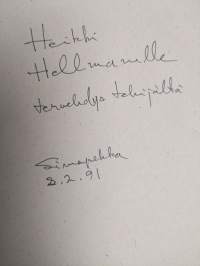 Heikki
Hellmanille
tervehdys tekijältä
Simopekka
8.2.91